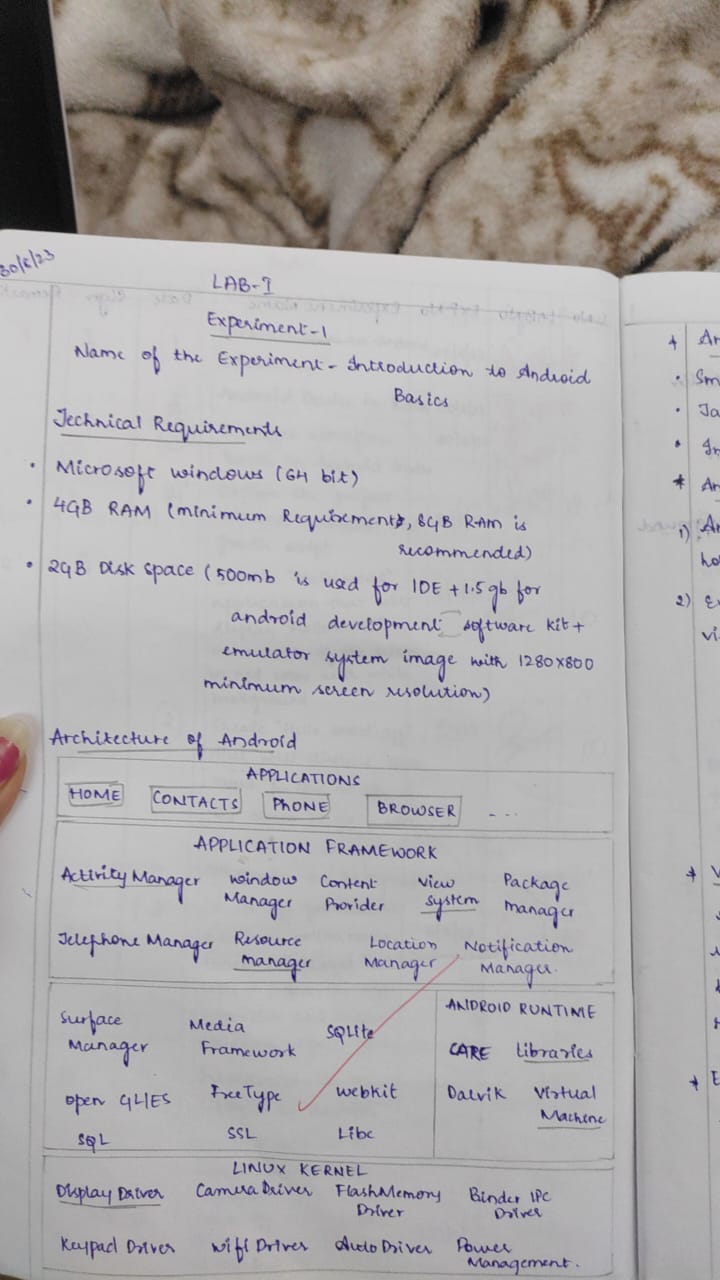 30/6/23
LAB-I
Experiment-1
Name of the Experiment - Introduction to Android
Basics
Technical Requirements
• Microsoft windows (64 bit)
• 4GB RAM (minimum Requirements, 8GB RAM is
recommended)
• 2GB Disk space (500mb is used for IDE + 1.5 gb for
android development software kit +
emulator system image with 1280x800
minimum screen resolution)
Architecture of Android
APPLICATIONS
HOME CONTACTS PHONE BROWSER ...
APPLICATION FRAMEWORK
Activity Manager window Manager Content Provider View system Package manager
Telephone Manager Resource manager Location Manager Notification Manager.
Surface Manager Media Framework SQLite
open GL/ES FreeType webkit
SQL SSL Libc
ANDROID RUNTIME
CARE Libraries
Dalvik Virtual Machine
LINUX KERNEL
Display Driver Camera Driver Flash Memory Driver Binder IPC Driver
Keypad Driver wifi Driver Auto Driver Power Management.
1)
2)